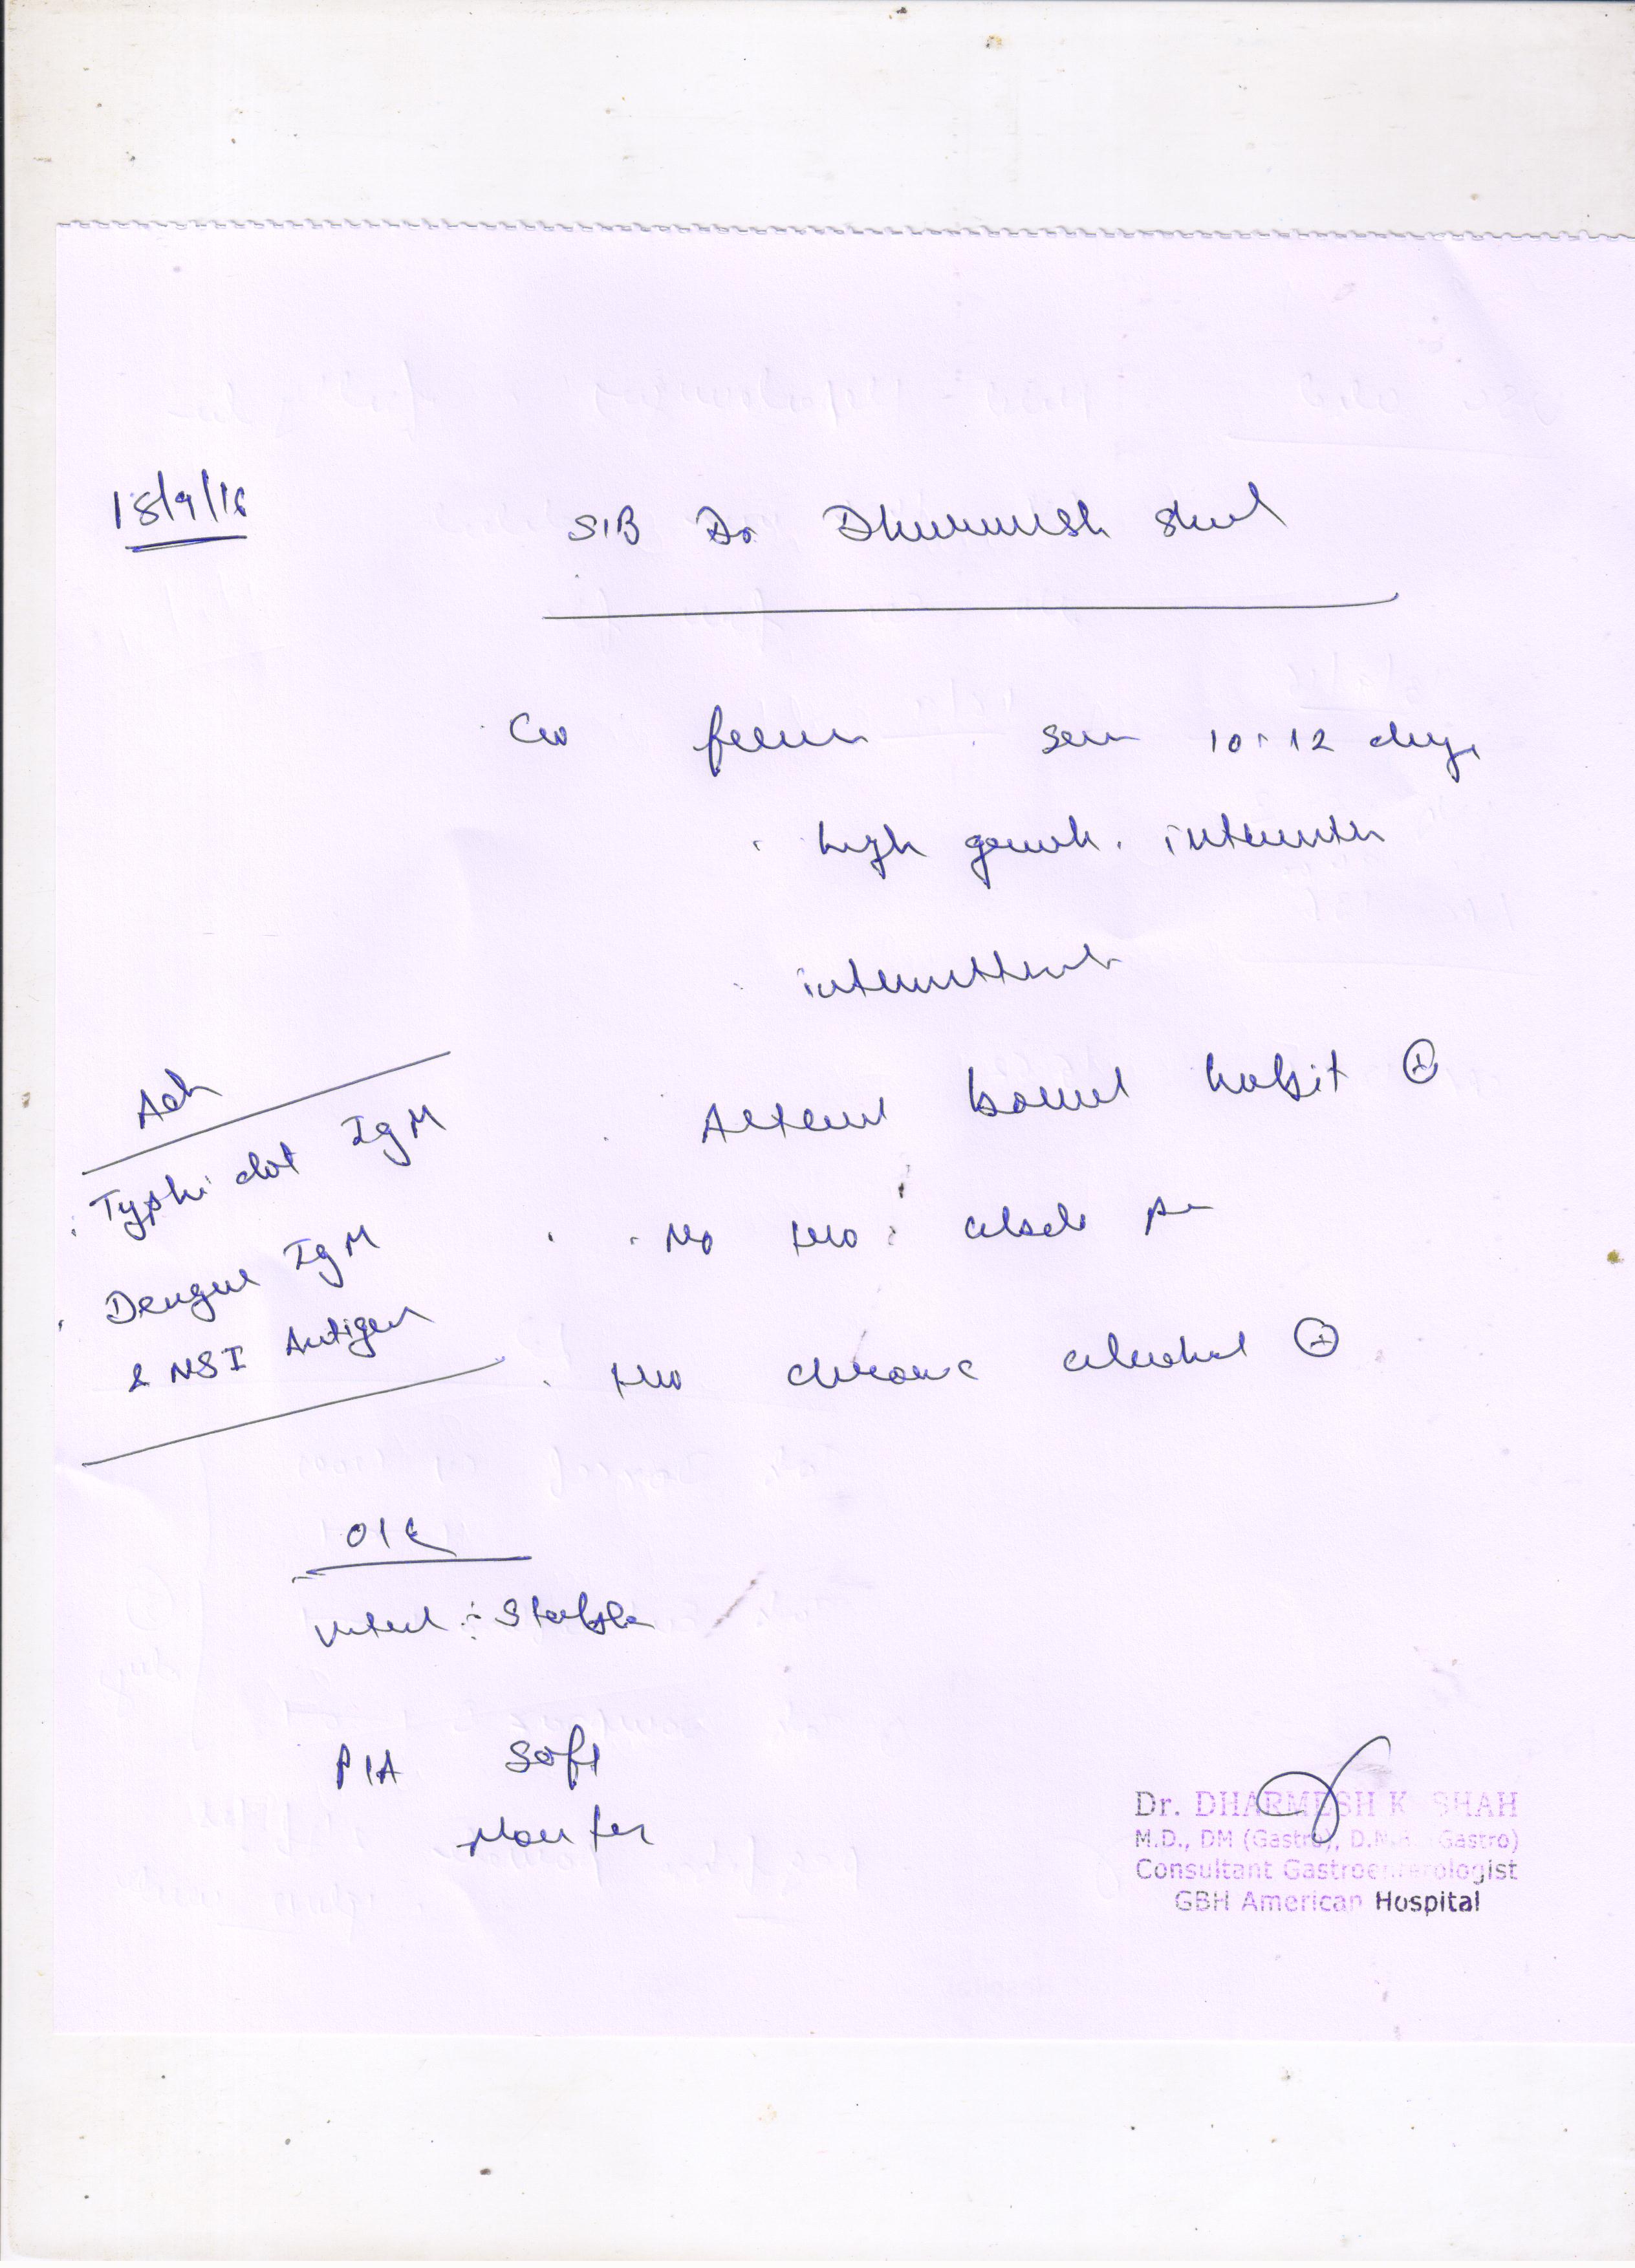 18/9/16
S/B Dr Dharmesh Shah
C/o fever since 10-12 days
high grade. intermittent
intermittent
Altered bowel habit ⊕
No H/o abdo pain
H/o chronic alcohol ⊕
Adv
Typhi dot IgM
Dengue IgM
& NS1 Antigen
O/E
Vital : Stable
P/A soft
Non ten
Dr. DHARMESH K SHAH
M.D., DM (Gastro), D.N.B. (Gastro)
Consultant Gastroenterologist
GBH American Hospital